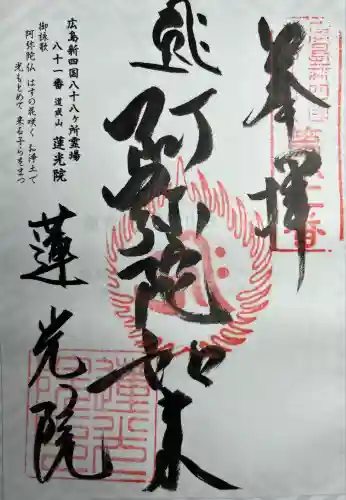 奉拝
阿弥陀如来
広島新四国八十八ヶ所霊場
八十一番 道成山 蓮光院
御詠歌
阿弥陀仏 はすの花咲く お浄土で
光もとめて 来る子らをまつ
蓮光院